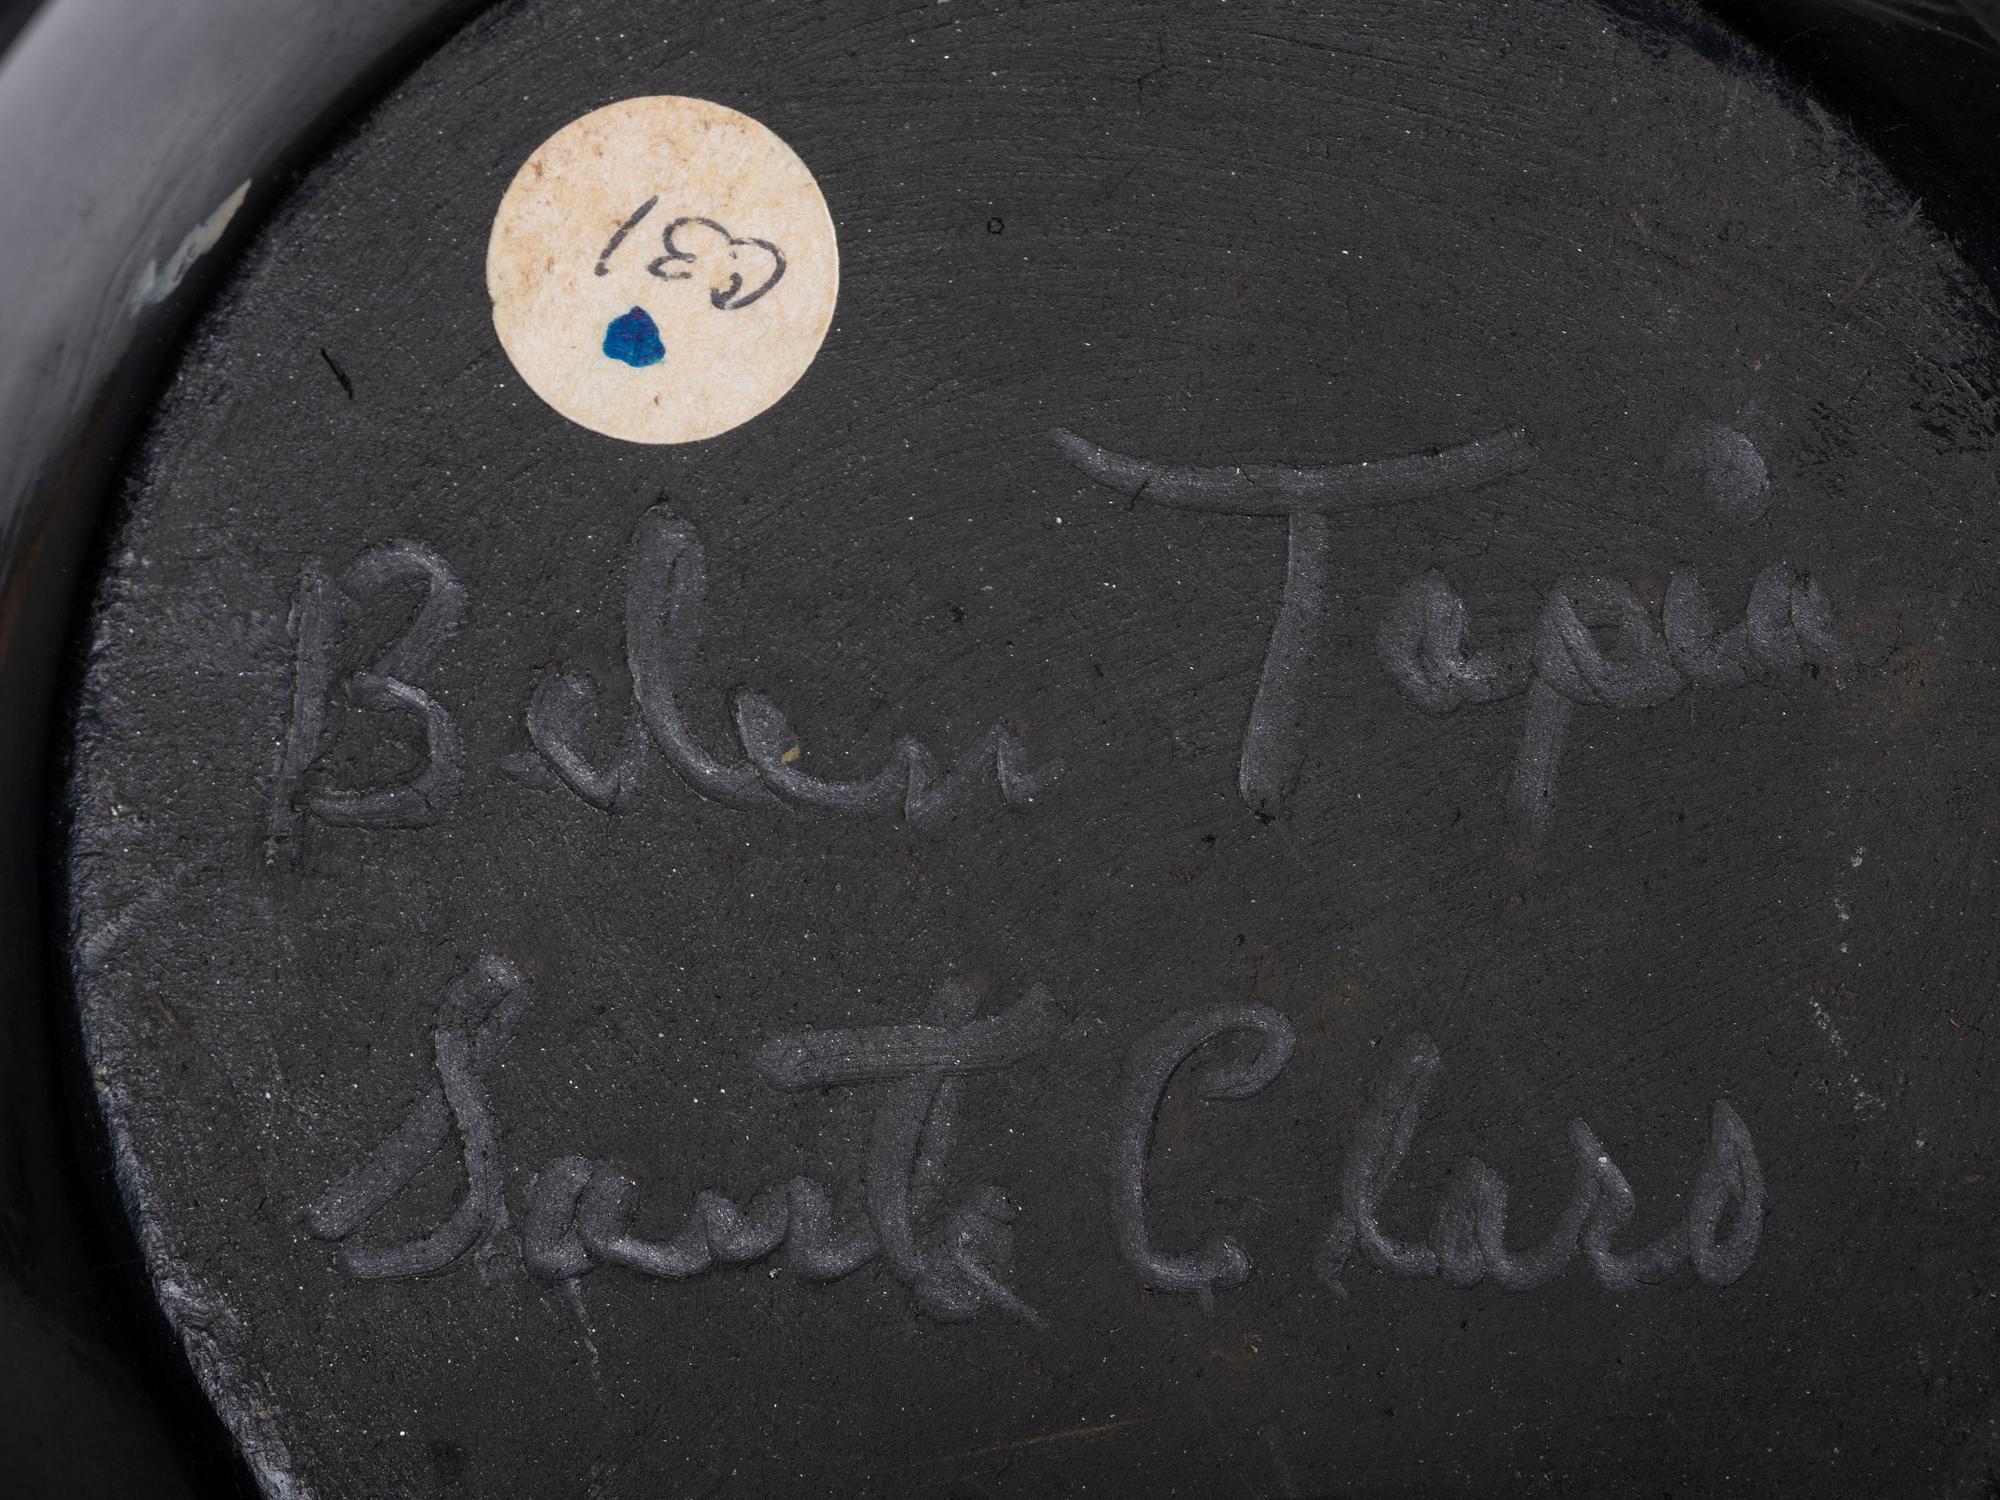 Belen Tapia
Santa Clara